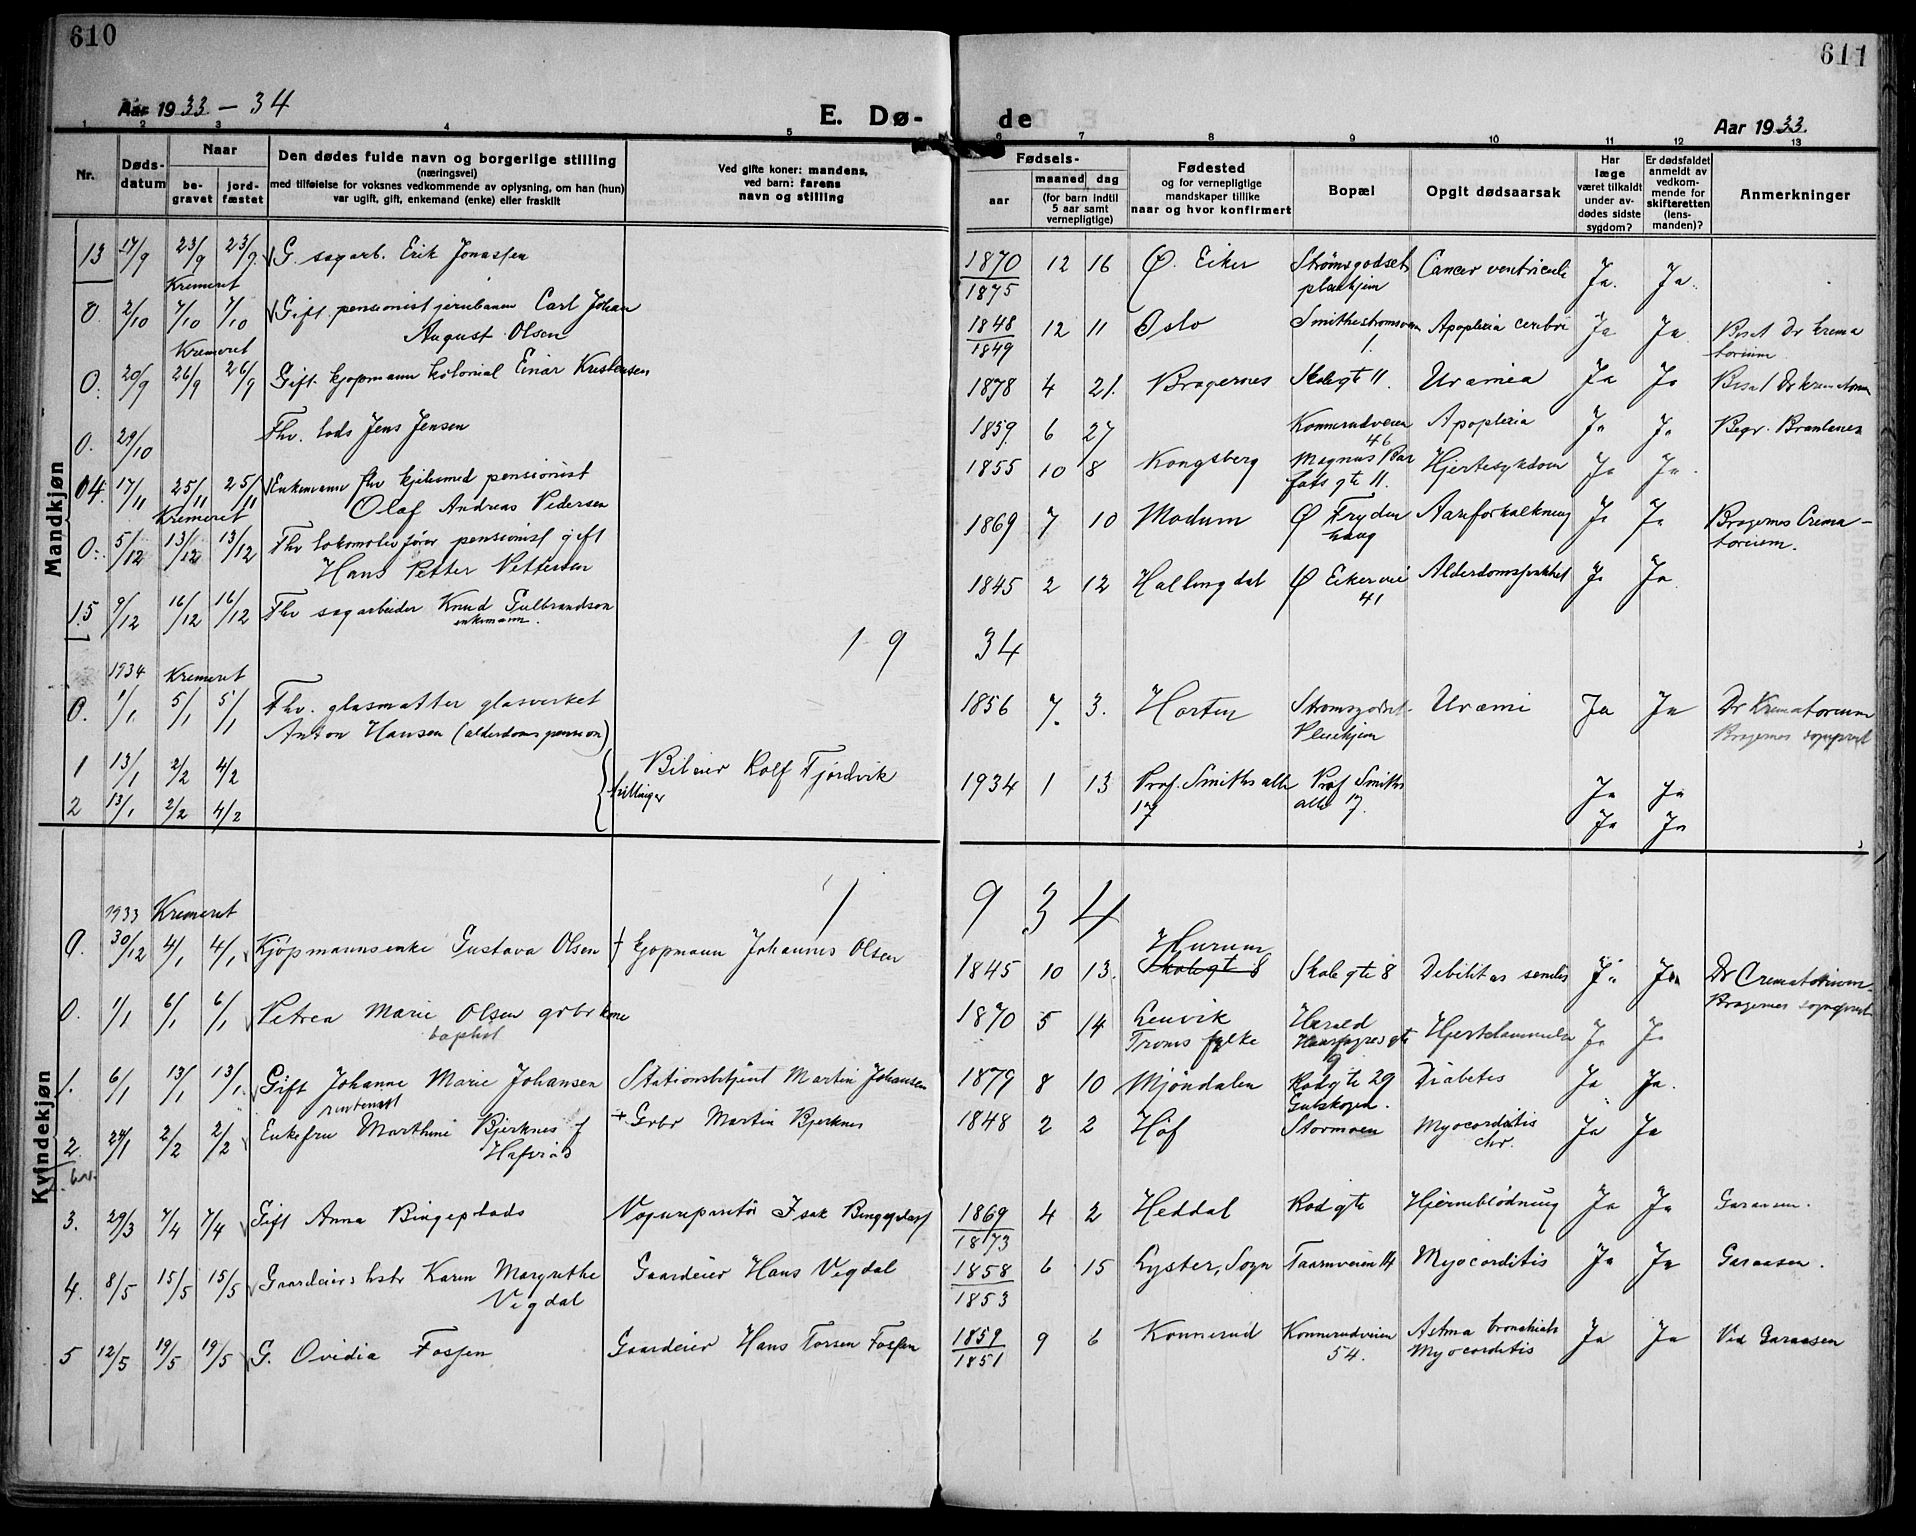 610
611
Aar 1933 - 34
E. Dø-
de
Aar 1933.
1 2 3 4 5 6 7 8 9 10 11 12 13
Nr.
Døds-
datum
Naar
be-
gravet
jord-
fæstet
Den dødes fulde navn og borgerlige stilling
(næringsvei)
med tilføielse for voksnes vedkommende av oplysning, om han (hun)
var ugift, gift, enkemand (enke) eller fraskilt
Ved gifte koner: mandens,
ved barn: farens
navn og stilling
Fødsels-
aar
maaned dag
(for barn indtil
5 aar samt
vernepligtige)
Fødested
og for vernepligtige
mandskaper tillike
naar og hvor konfirmert
Bopæl
Opgit dødsaarsak
Har
læge
været tilkaldt
under av-
dødes sidste
sygdom?
Er dødsfaldet
anmeldt av
vedkom-
mende for
skifteretten
(lens-
manden)?
Anmerkninger
Mandkjøn
13 17/9 23/9 23/9 G. sagarb. Erik Jonassen 1870/1875 12 16 Ø. Eiker Strømsgodset Cancer ventriculi Ja. Ja.
Kremeret
0. 2/10 7/10 7/10 Gift. pensionist jernbanen Carl Johan
August Olsen 1848/1849 12 11 Oslo 1. Apoplexia cerebri Ja Ja Dr krema
torium
Kremeret
0. 20/9 26/9 26/9 Gift. kjøpmann kolonial Einar Kristensen 1878 4 21. Bragernes Skolegt 11. Uræmea Ja Ja
0. 29/10 Fhv. lods Jens Jensen 1859 6 27 Konnerudveien
46 Apoplexia Ja Ja Begr.
04. 17/11 25/11 25/11 Enkemann fhv kjelesmed pensionist
Olaf Andreas Pedersen 1855 10 8 Kongsberg Magnus Bar
fots gt 11. Hjertesykdom Ja Ja.
Kremeret
0. 5/12 13/12 13/12 Fhv lokomotivfører pensionist gift
Hans Petter Pettersen 1869 7 10 Modum Ø Fryden
haug Aareforkalkning Ja Ja Bragernes Crema-
torium.
15 9/12 16/12 16/12 Fhv sagarbeider Knud Gulbrandson
enkemann. 1845 2 12 Hallingdal Ø Eikervei
41 Ja Ja.
1 9 34
1934 Kremeret
0. 1/1 5/1 5/1 Fhv. glasmatter glasverket
Anton Hansen (alderdomspension) 1856 7. 3. Horten Strømsgodset
Pleiehjem Uræmi Ja Ja Dr Krematorium
Bragernes sogneprest
1 13/1 2/2 4/2 Bileier Rolf Fjørdvik
2 13/1 2/2 4/2 tvillinger
1934 1 13 Prof. Smiths alle
17 Prof Smiths
alle 17. Ja Ja
Ja Ja
Kvindekjøn
1 9 3 4
1933 Kremeret
0. 30/12 4/1 4/1 Kjøpmannsenke Gustava Olsen † kjøpmann Johannes Olsen 1845 10 13. Hurum
Skolegt 8 Skolegte 8 Debilitas senilis Ja Ja Dr Crematorium
Bragernes sogneprest
0. 1/1 6/1 6/1 Petrea Marie Olsen grbr kone
baptist 1870 5 14 Lenvik
Troms fylke Harald
Haarfagres gt
9 Hjertelammelse Ja Ja
1. 6/1 13/1 13/1. Gift Johanne Marie Johansen Stationsbetjent Martin Johansen 1879 8 10 Mjøndalen Rødgte 29
Gulskogen. Diabetes Ja Ja.
2. 24/1 2/2 2/2 Enkefru Marthine Bjerknes f + Grbr Martin Bjerknes 1848 2 2 Hof Stormoen Myocorditis
chr. Ja Ja
3. 29/3 7/4 7/4 Gift Anna Bingeplads Isak Bingeplass 1869/1873 4 2 Heddal Rødgte Hjerneblødning Ja Ja Garaasen.
4. 8/5 15/5 15/5 Gaardeiers hstr Karen Margrethe
Vigdal Gaardeier Hans Vigdal 1858/1853 6 15 Lyster, Sogn Taarnveien 14 Myocorditis Ja Ja Garaasen.
5 12/5 19/5 19/5 G. Ovidia Fossen Gaardeier Hans Torsen Fossen 1859/1851 9 6 Konnerud Konnerudveien
54. Astma bronchiale
Myocorditis Ja Ja Ved Garaasen